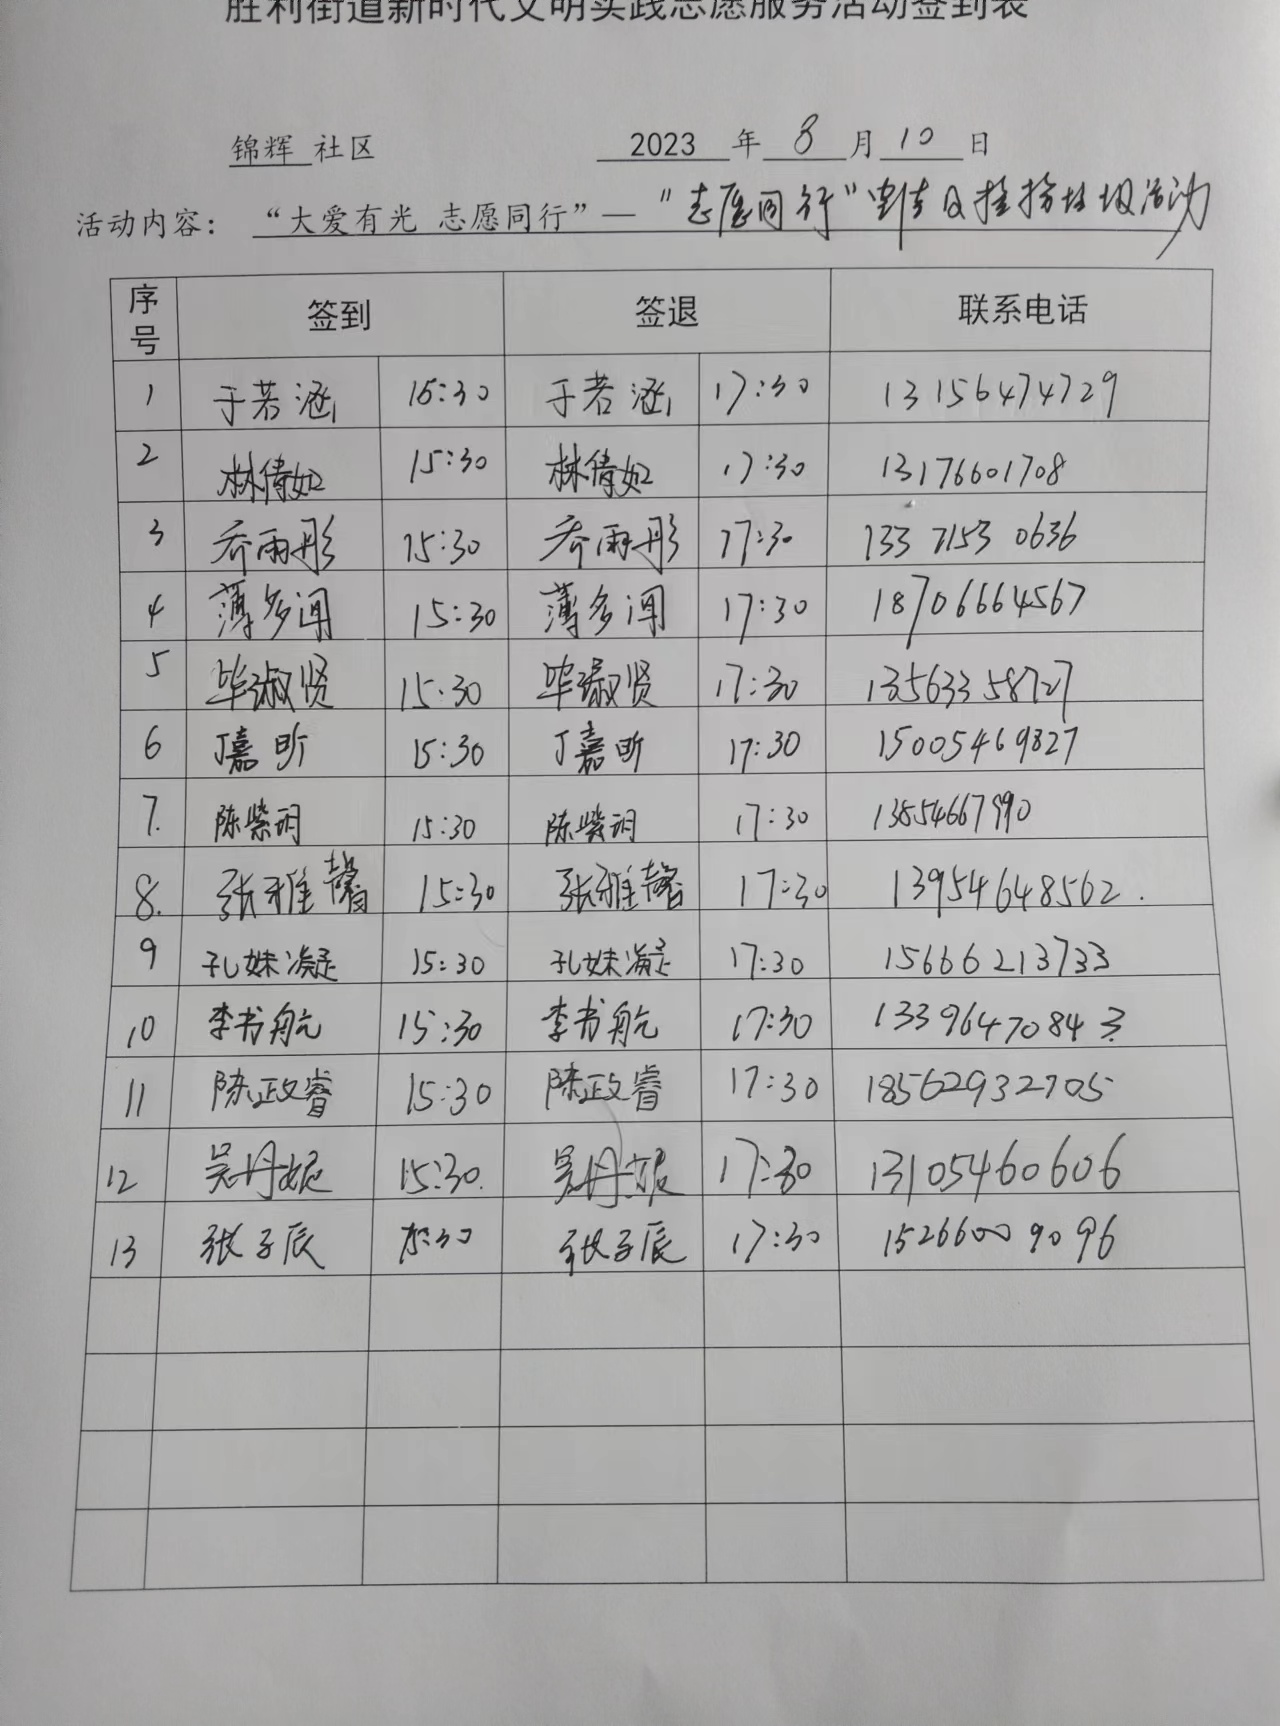 胜利街道新时代文明实践志愿服务活动签到表
锦辉 社区 2023 年 8 月 10 日
活动内容： “大爱有光 志愿同行”— “志愿同行” 垃圾活动
序号 签到 签退 联系电话
1 于若涵 15:30 于若涵 17:30 13156474729
2 林倩如 15:30 林倩如 17:30 13176601708
3 乔雨彤 15:30 乔雨彤 17:30 133 7153 0636
4 薄多闻 15:30 薄多闻 17:30 18706664567
5 毕淑贤 15:30 毕淑贤 17:30 13563358727
6 丁嘉昕 15:30 丁嘉昕 17:30 15005469827
7. 陈紫玥 15:30 陈紫玥 17:30 13854667990
8. 张雅馨 15:30 张雅馨 17:30 13954648562.
9 孔姝凝 15:30 孔姝凝 17:30 15666213733
10 李书航 15:30 李书航 17:30 13396470843
11 陈政睿 15:30 陈政睿 17:30 18562932705
12 吴丹妮 15:30. 吴丹妮 17:30 13105460606
13 张子辰 15:30 张子辰 17:30 15266009096